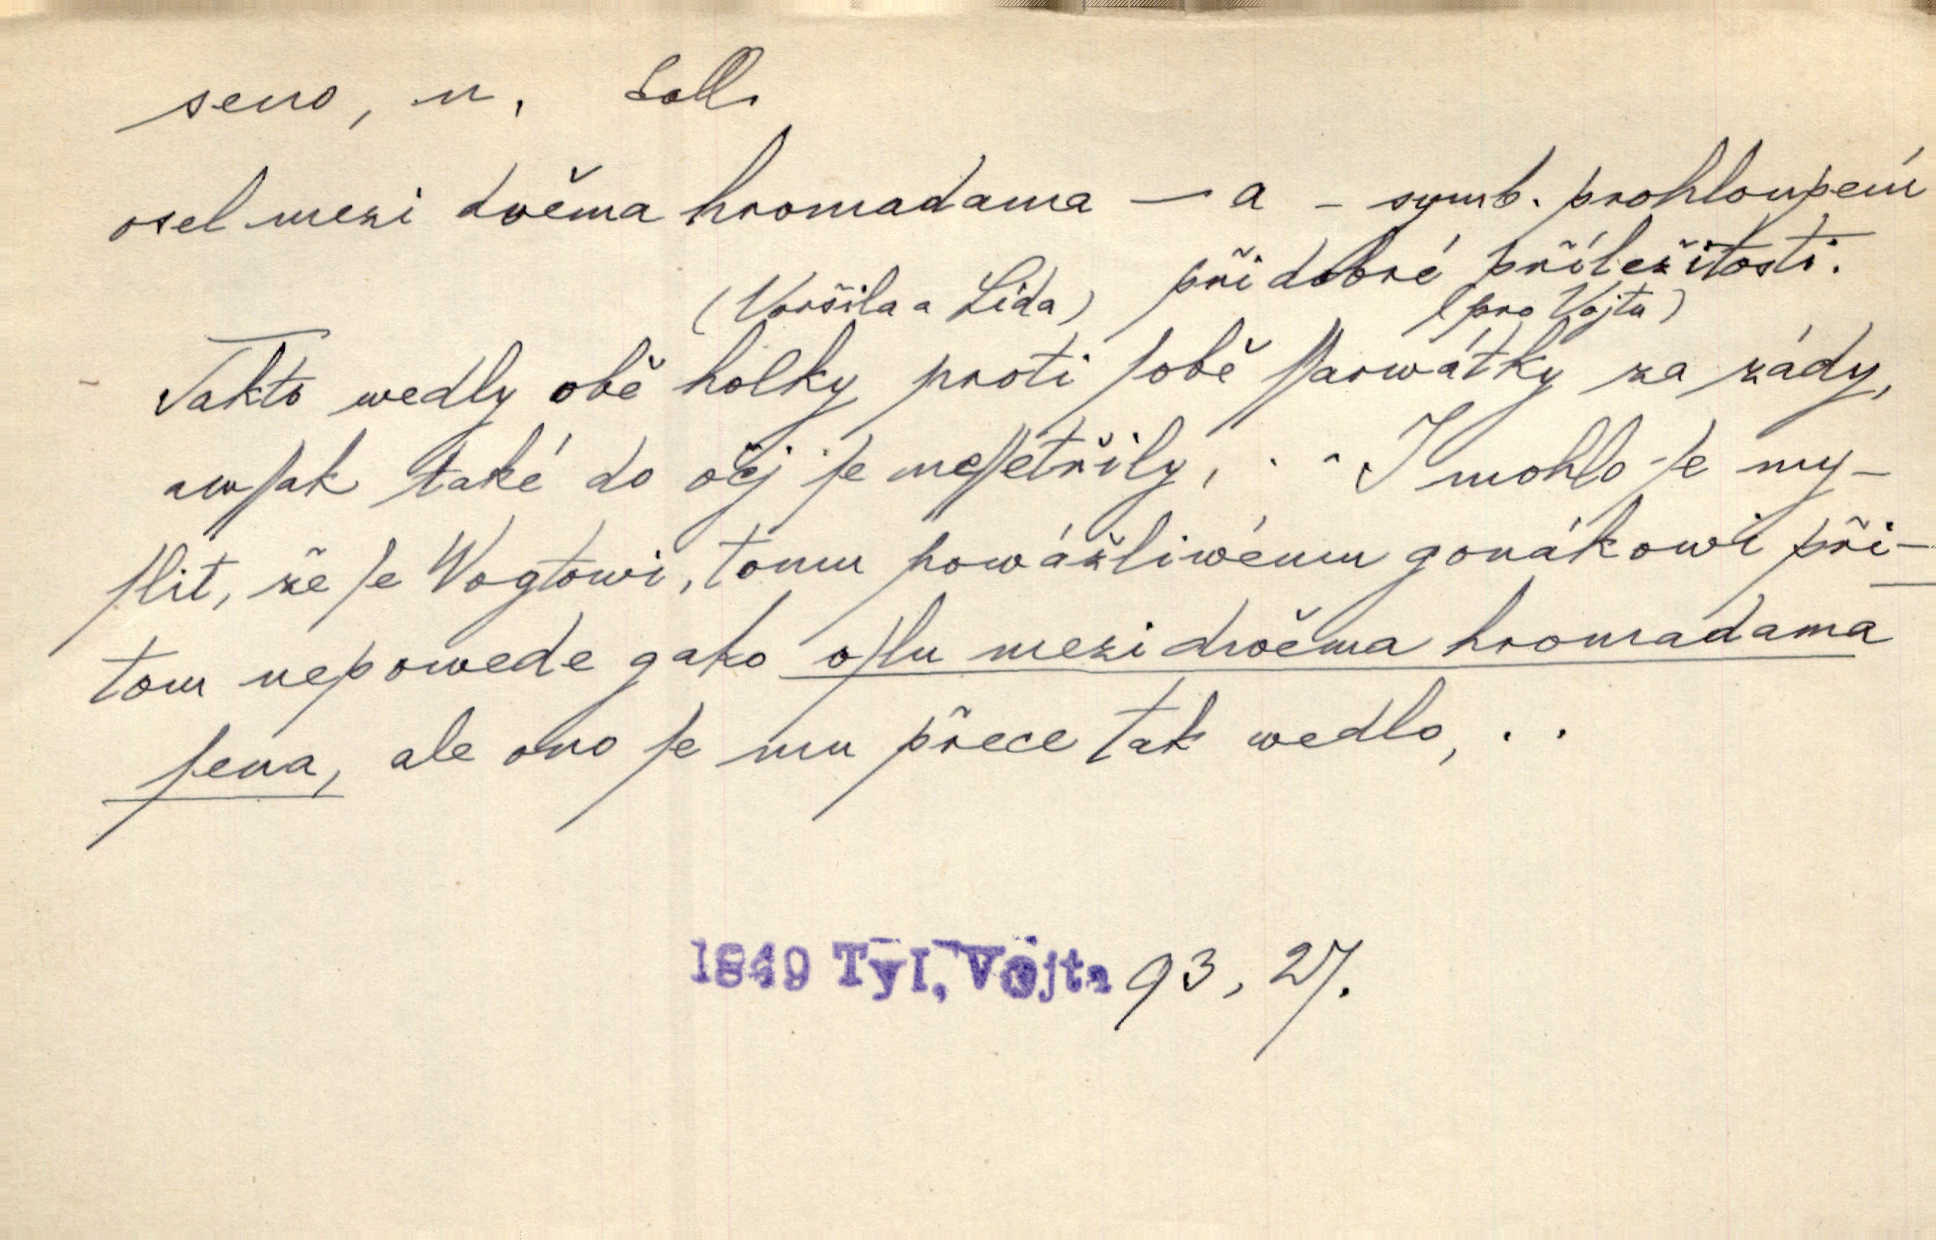 seno, n.
osel mezi dvěma hromadama — a – symb. prohloupení
při dobré příležitosti.
(Voršila a Lida) (pro Vojtu)
Takto wedly obě holky proti ſobě ſſarwátky za zády,
awſak také do očj ſe neſſetřily, . . I mohlo ſe my-
ſlit, že ſe Wogtowi, tomu powážliwému gonákowi při-
tom nepowede gako oſlu mezi dwěma hromadama
ſena, ale ono ſe mu přece tak wedlo, . .
1849 Tyl, Vojta 93, 27.